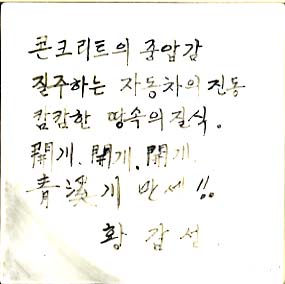 콘크리트의 중압감
질주하는 자동차의 진동
캄캄한 땅속의 질식.
開개. 開개. 開개.
青溪개 만세!!
황갑선